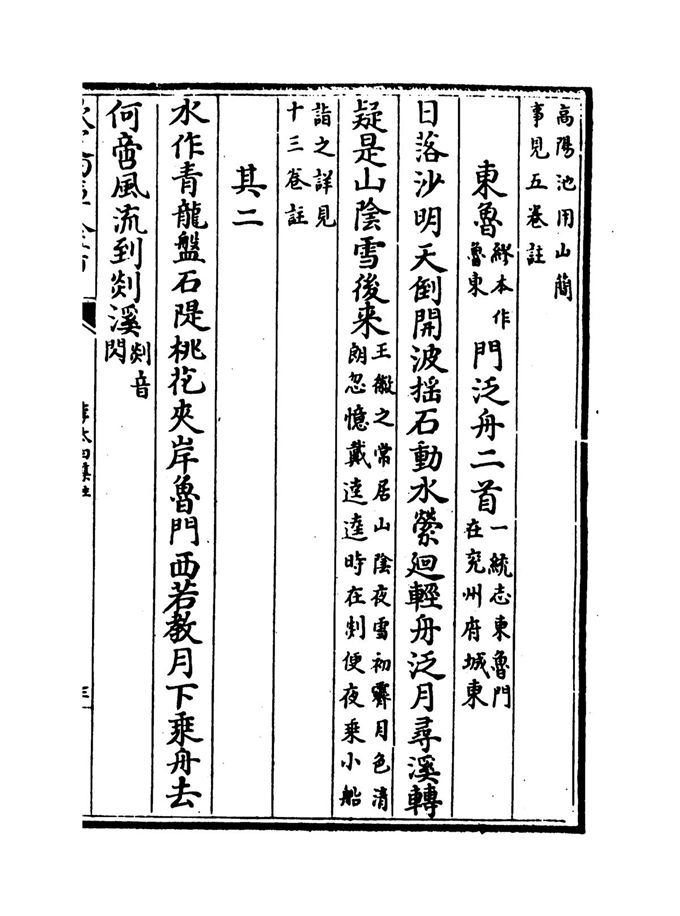 高陽池用山簡
事見五卷註
東魯繆本作魯東門泛舟二首一統志東魯門在兖州府城東
日落沙明天倒開波揺石動水縈廻輕舟泛月尋溪轉
疑是山陰雪後来王徽之常居山陰夜雪初霽月色清朗忽憶戴逵逵時在剡便夜乘小船
詣之詳見
十三卷註
其二
水作青龍盤石隄桃花夾岸魯門西若教月下乘舟去
何啻風流到剡溪剡音閃